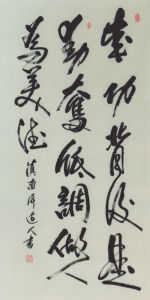 成功背後是
勤奮低調做人
為美德
滇南 人書